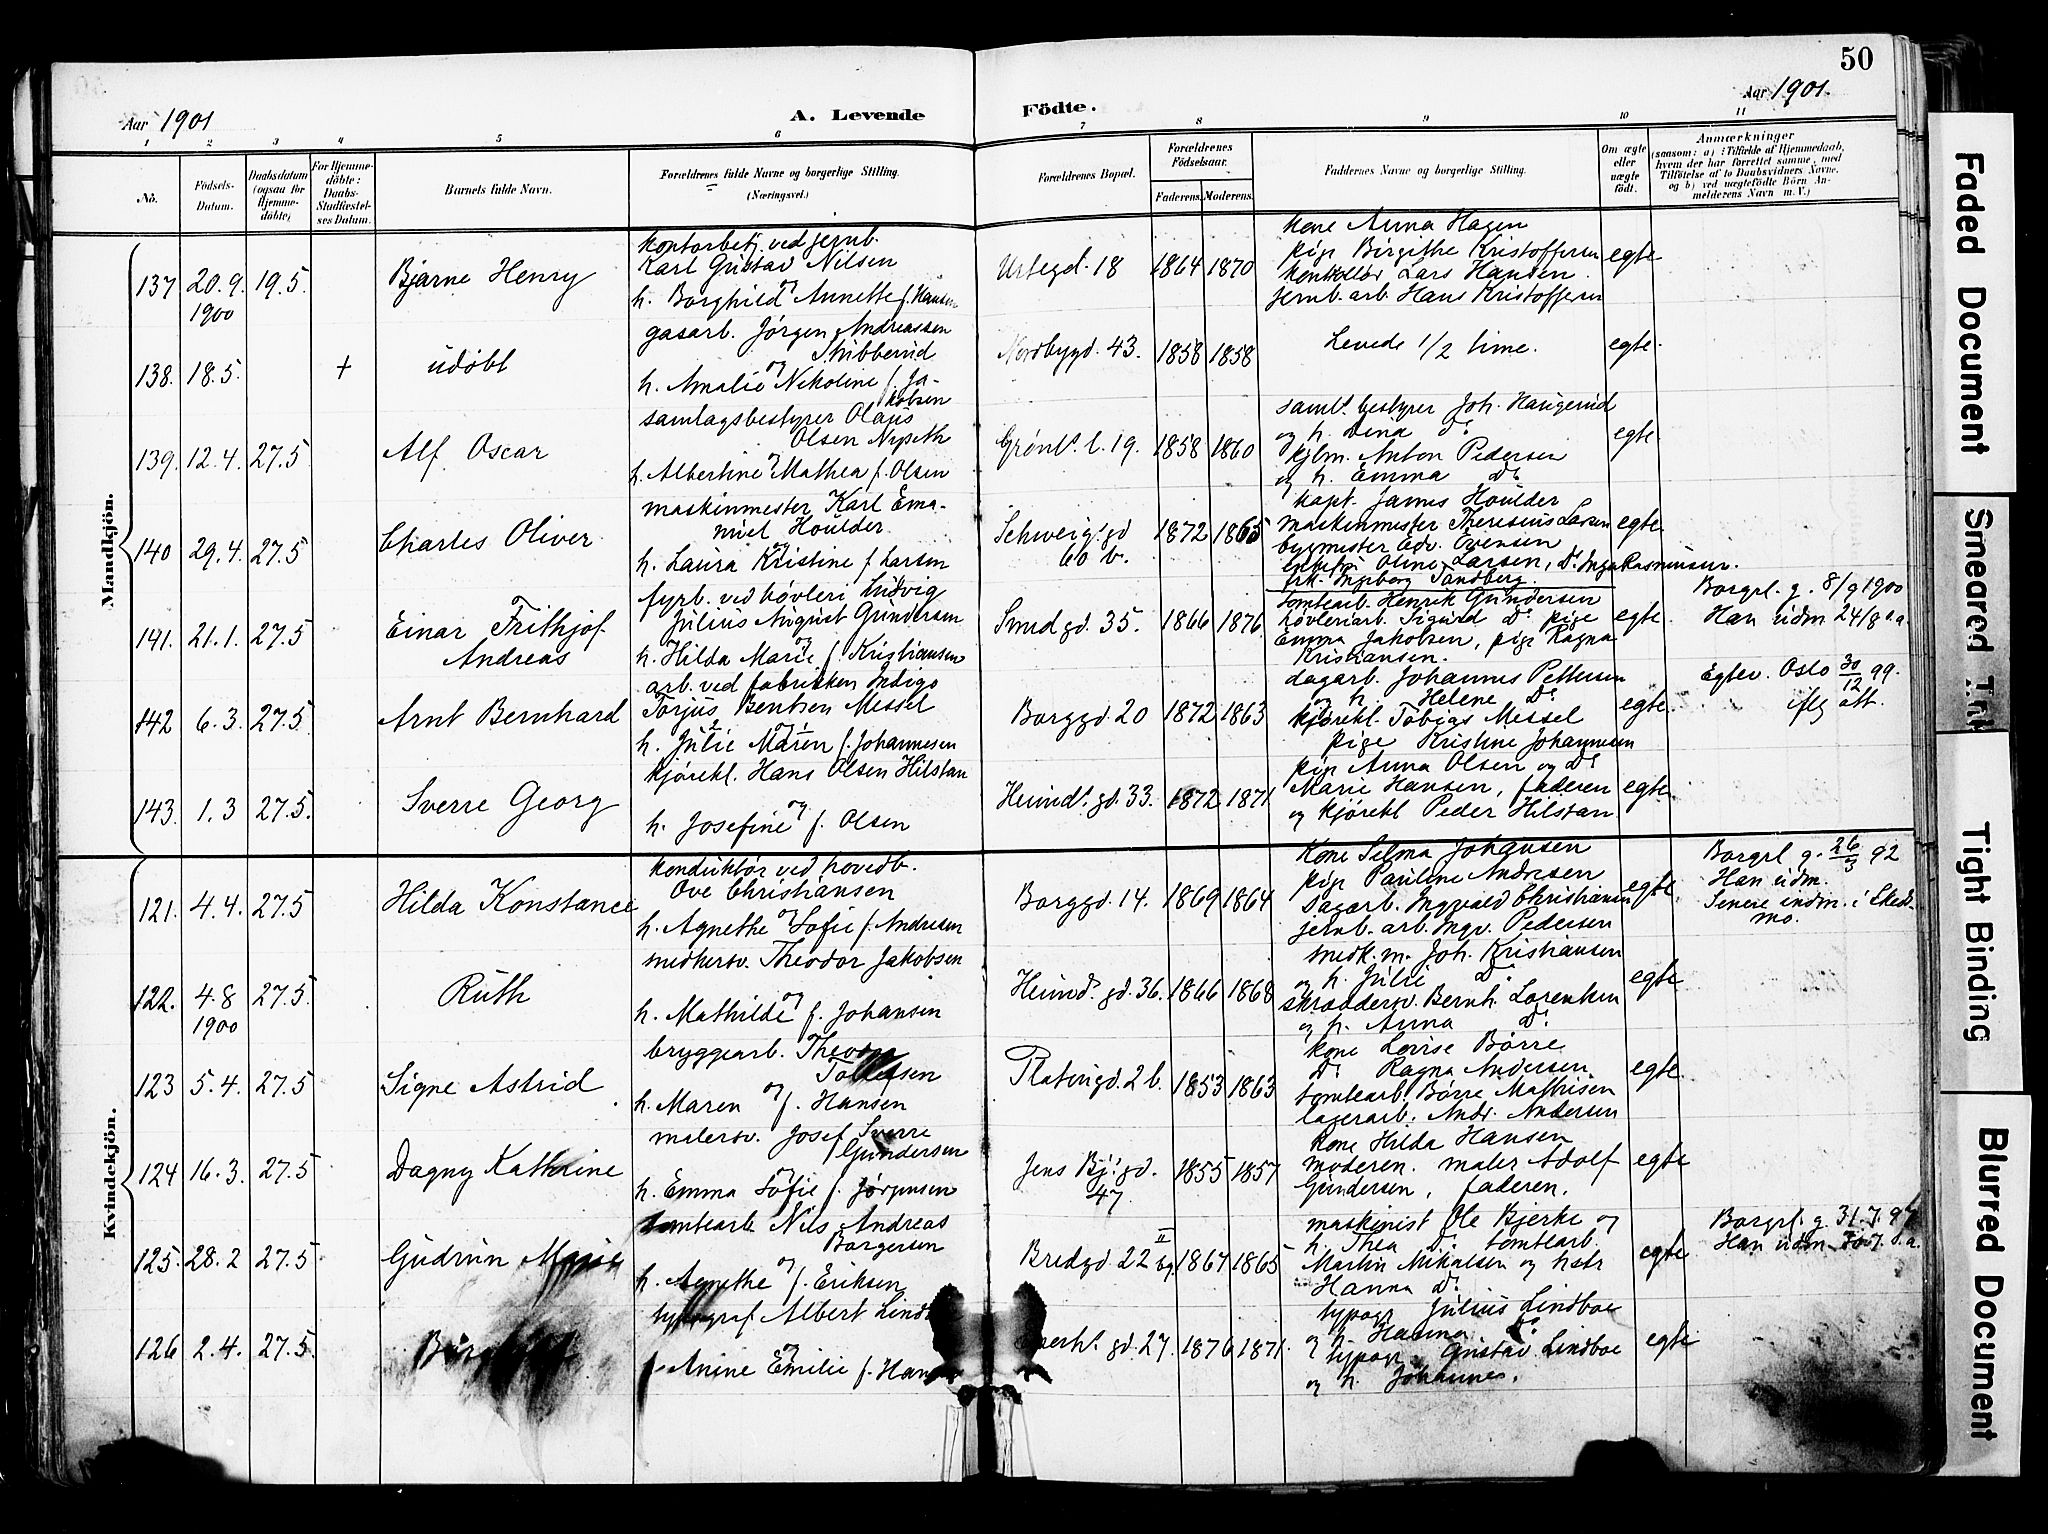 50
Aar 1901
A. Levende Födte.
Aar 1901.
1 2 3 4 5 6 7 8 9 10 11
No.
Födsels-Datum.
Daabsdatum (ogsaa for Hjemme-döbte)
For Hjemme-döbte: Daabs-Stadfæstel-ses Datum.
Barnets fulde Navn.
Forældrenes fulde Navne og borgerlige Stilling.
(Næringsvei.)
Forældrenes Bopæl.
Forældrenes Födselsaar.
Faderens. Moderens.
Faddernes Navne og borgerlige Stilling.
Om ægte eller uægte födt.
Anmærkninger
(saasom: a) i Tilfælde af Hjemmedaab,
hvem der har forrettet samme, med
Tilföielse af to Daabsvidners Navne,
og b) ved uægtefödte Börn An-
melderens Navn m. V.)
Mandkjön.
137 20.9. 1900 19.5. Bjarne Henry
kontorbetj. ved jernb.
Karl Gustav Nilsen
og
h. Borghild Annette f. Hansen
Urtegd. 18 1864 1870
kone Anna Hagen
pige Birgithe Kristoffersen
kontrollør Lars Hansen.
jernb. arb. Hans Kristoffersen
egte
138. 18.5. + udøbt
gasarb. Jörgen Andreassen
Stubberud
og
h. Amalie Nikoline f. Ja-
kobsen
Nordbygd. 43. 1858 1858
Levede 1/2 time.
egte.
139. 12.4. 27.5 Alf Oscar
samlagsbestyrer Olaus
Olsen Nyseth
og
h. Albertine Mathea f. Olsen
Grønl. l. 19. 1858 1860
saml. bestyrer Joh. Haugerud
og h. Dina Do
kjbm. Anton Pedersen
og h. Emma Do
egte
140 29.4. 27.5 Charles Oliver
maskinmester Karl Ema-
nuel Houlder
og
h. Laura Kristine f. Larsen
Schweig. gd 60 b. 1872 1865
kapt. James Houlder
maskinmester Theresius Larsen
bygmester Edv. Evensen
enkefru Oline Larsen, Do Inga Rasmussen.
frk. Ingeborg Sandberg.
egte
141. 21.1. 27.5 Einar Frithjof
Andreas
fyrb. ved høvleri Ludvig
Julius August Gundersen
og
h. Hilda Marie f. Kristiansen
Smedgd. 35. 1866 1876
tomtearb. Henrik Gundersen
høvleriarb. Sigurd Do pige
Emma Jakobsen, pige Ragna
Kristiansen.
egte.
Borgrl. g. 8/9 1900
Han udm 24/8 s.a.
142 6.3. 27.5 Arnt Bernhard
arb. ved fabrikken Indigo
Torjus Bentsen Messel
og
h. Julie Maren f. Johannesen
Borggd 20 1872 1863
dagarb. Johannes Pettersen
og h. Helene Do
kjørekl. Tobias Messel
pige Kristine Johannesen
egte.
Egtev. Oslo 30/12 99.
iflg att.
143. 1.3 27.5. Sverre Georg
kjørekl. Hans Olsen Hilstan
og
h. Josefine f. Olsen
Heimdl. gd. 33. 1872 1871
pige Anna Olsen og Do
Marie Hansen, faderen
og kjørekl Peder Hilstan
egte.
Kvindekjön.
121. 4.4. 27.5 Hilda Konstance
konduktør ved hovedb.
Ove Christiansen
og
h. Agnethe Sofie f. Andresen
Borggd. 14. 1869 1864
Kone Selma Johansen
pige Pauline Andresen
Dagarb. Ingvald Christiansen
jernb. arb. Ingv. Pedersen
egte.
Borgrl g. 26/3 92
Han udm.
Senere indm. i Sked-
mo.
122. 4.8 1900 27.5. Ruth
snedkersv. Theodor Jakobsen
og
h. Mathilde f. Johansen
Heimd. gd. 36. 1866 1868
snedk. m. Joh. Kristiansen
og h. Julie Do
skræddersv. Bernh. Lorentsen
og h. Anna Do
egte
123 5.4. 27.5 Signe Astrid
bryggearb. Theodor
Tollefsen
og
h. Maren f. Hansen
Platougd. 2 b. 1853 1863
kone Lovise Børre
Do Ragna Andersen
tomtearb. Børre Mathisen
lagerarb. Andr. Andersen
egte.
124 16.3. 27.5 Dagny Kathrine
malersv. Josef Sverre
Gundersen
og
h. Emma Sofie f. Jørgensen
Jens Bj. gd. 47. 1855 1857
kone Hilda Hansen
moderen. maler Adolf
Gundersen, faderen.
egte
125. 28.2 27.5 Gudrun Marie
tomtearb Nils Andreas
Borgersen
og
h. Agnethe f. Eriksen
Bredgd 22 II bg 1867 1865
maskinist Ole Bjerke og
h. Thea Do. tomtearb.
Martin Mikalsen og hstr
Hanna Do
egte
Borgrl. g. 31.7.97
Han udm s.a.
126 2.4. 27.5.
typograf Albert Lindboe
og
h. Anine Emilie f. Hansen
gd. 27. 1876 1871.
typogr. Julius Lindboe
og h. Hanna Do
typogr. Gustav Lindboe
og h. Johannes.
egte
Faded Document
Smeared Ink
Tight Binding
Blurred Document